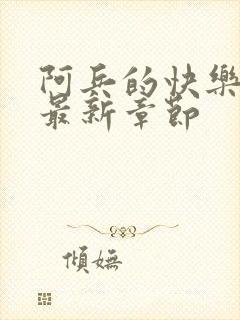 阿兵的快樂
最新章節
傾嫵